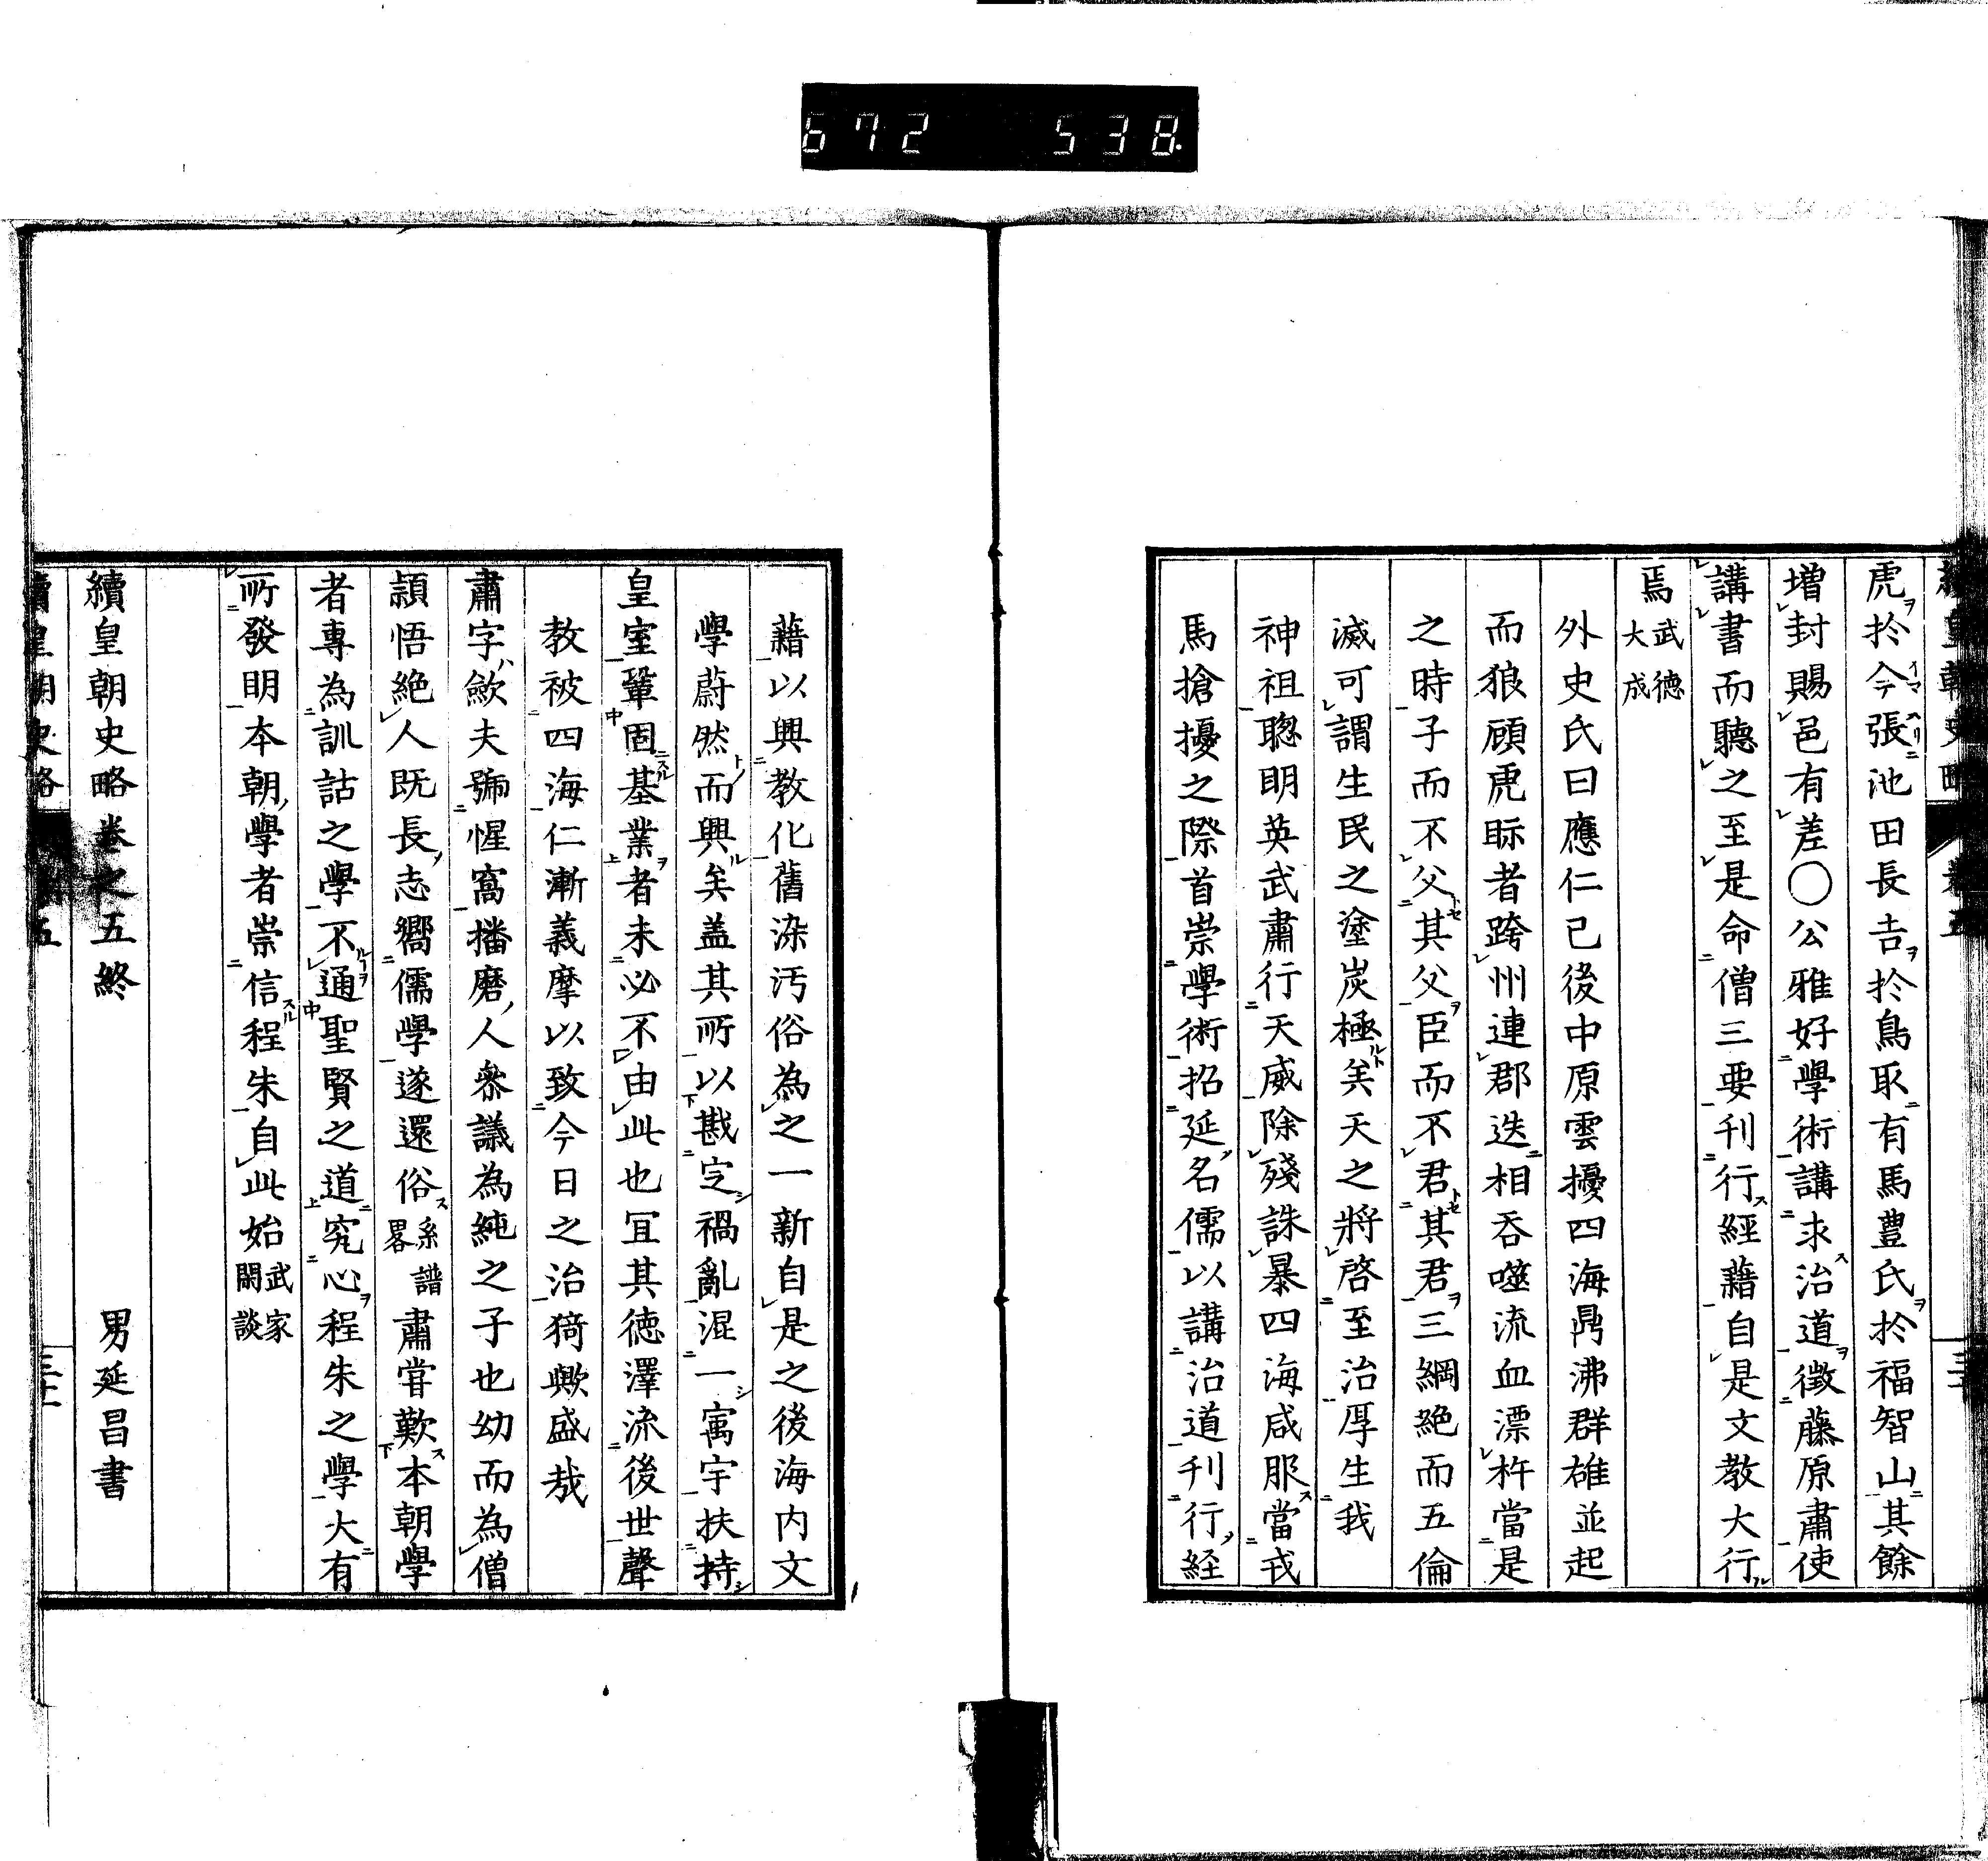 672 538.
虎於今張池田長吉於鳥取有馬豊氏於福智山其餘
増封賜邑有差○公雅好學術講求治道徴藤原肅使
講書而聽之至是命僧三要刊行經藉自是文教大行
焉武德大成
外史氏曰應仁已後中原雲擾四海鼎沸群雄並起
而狼顧虎眎者跨州連郡迭相吞噬流血漂杵當是
之時子而不父其父臣而不君其君三綱絶而五倫
滅可謂生民之塗炭極矣天之將啓至治厚生我
神祖聰明英武肅行天威除殘誅暴四海咸服當戎
馬搶擾之際首崇學術招延名儒以講治道刊行経
藉以興教化舊染汚俗為之一新自是之後海内文
學蔚然而興矣盖其所以戡定禍亂混一寓宇扶持
皇室鞏固基業者未必不由此也冝其徳澤流後世聲
教被四海仁漸義摩以致今日之治猗歟盛哉
肅字歛夫號惺窩播磨人叅議為純之子也幼而為僧
頴悟絶人既長志嚮儒學遂還俗系譜畧肅甞歎本朝學
者專為訓詁之學不通聖賢之道究心程朱之學大有
所發明本朝學者崇信程朱自此始武家閑談
續皇朝史略巻之五終
男延昌書